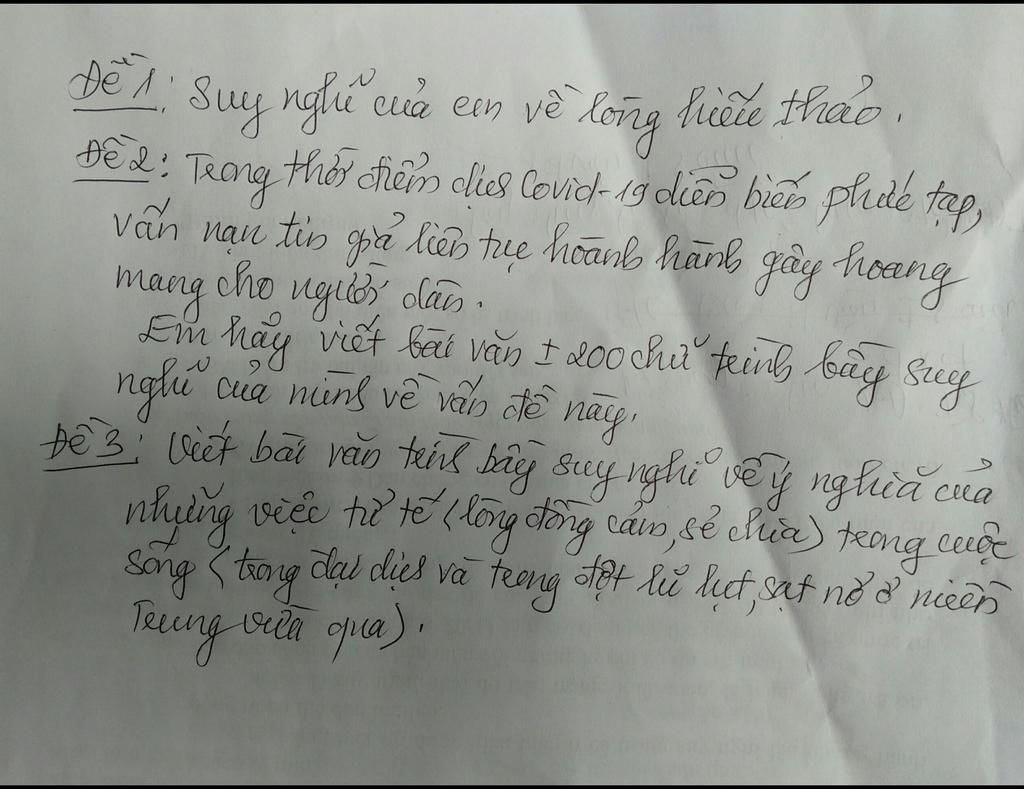 Đề 1: Suy nghĩ của em về lòng hiếu thảo.
Đề 2: Trong thời điểm dịch Covid-19 diễn biến phức tạp,
vấn nạn tin giả liên tục hoành hành gây hoang
mang cho người dân.
Em hãy viết bài văn ± 200 chữ trình bày suy
nghĩ của mình về vấn đề này.
Đề 3: Viết bài văn trình bày suy nghĩ về ý nghĩa của
những việc tử tế (lòng đồng cảm, sẻ chia) trong cuộc
sống (trong đại dịch và trong đợt lũ lụt, sạt nở ở miền
Trung vừa qua).